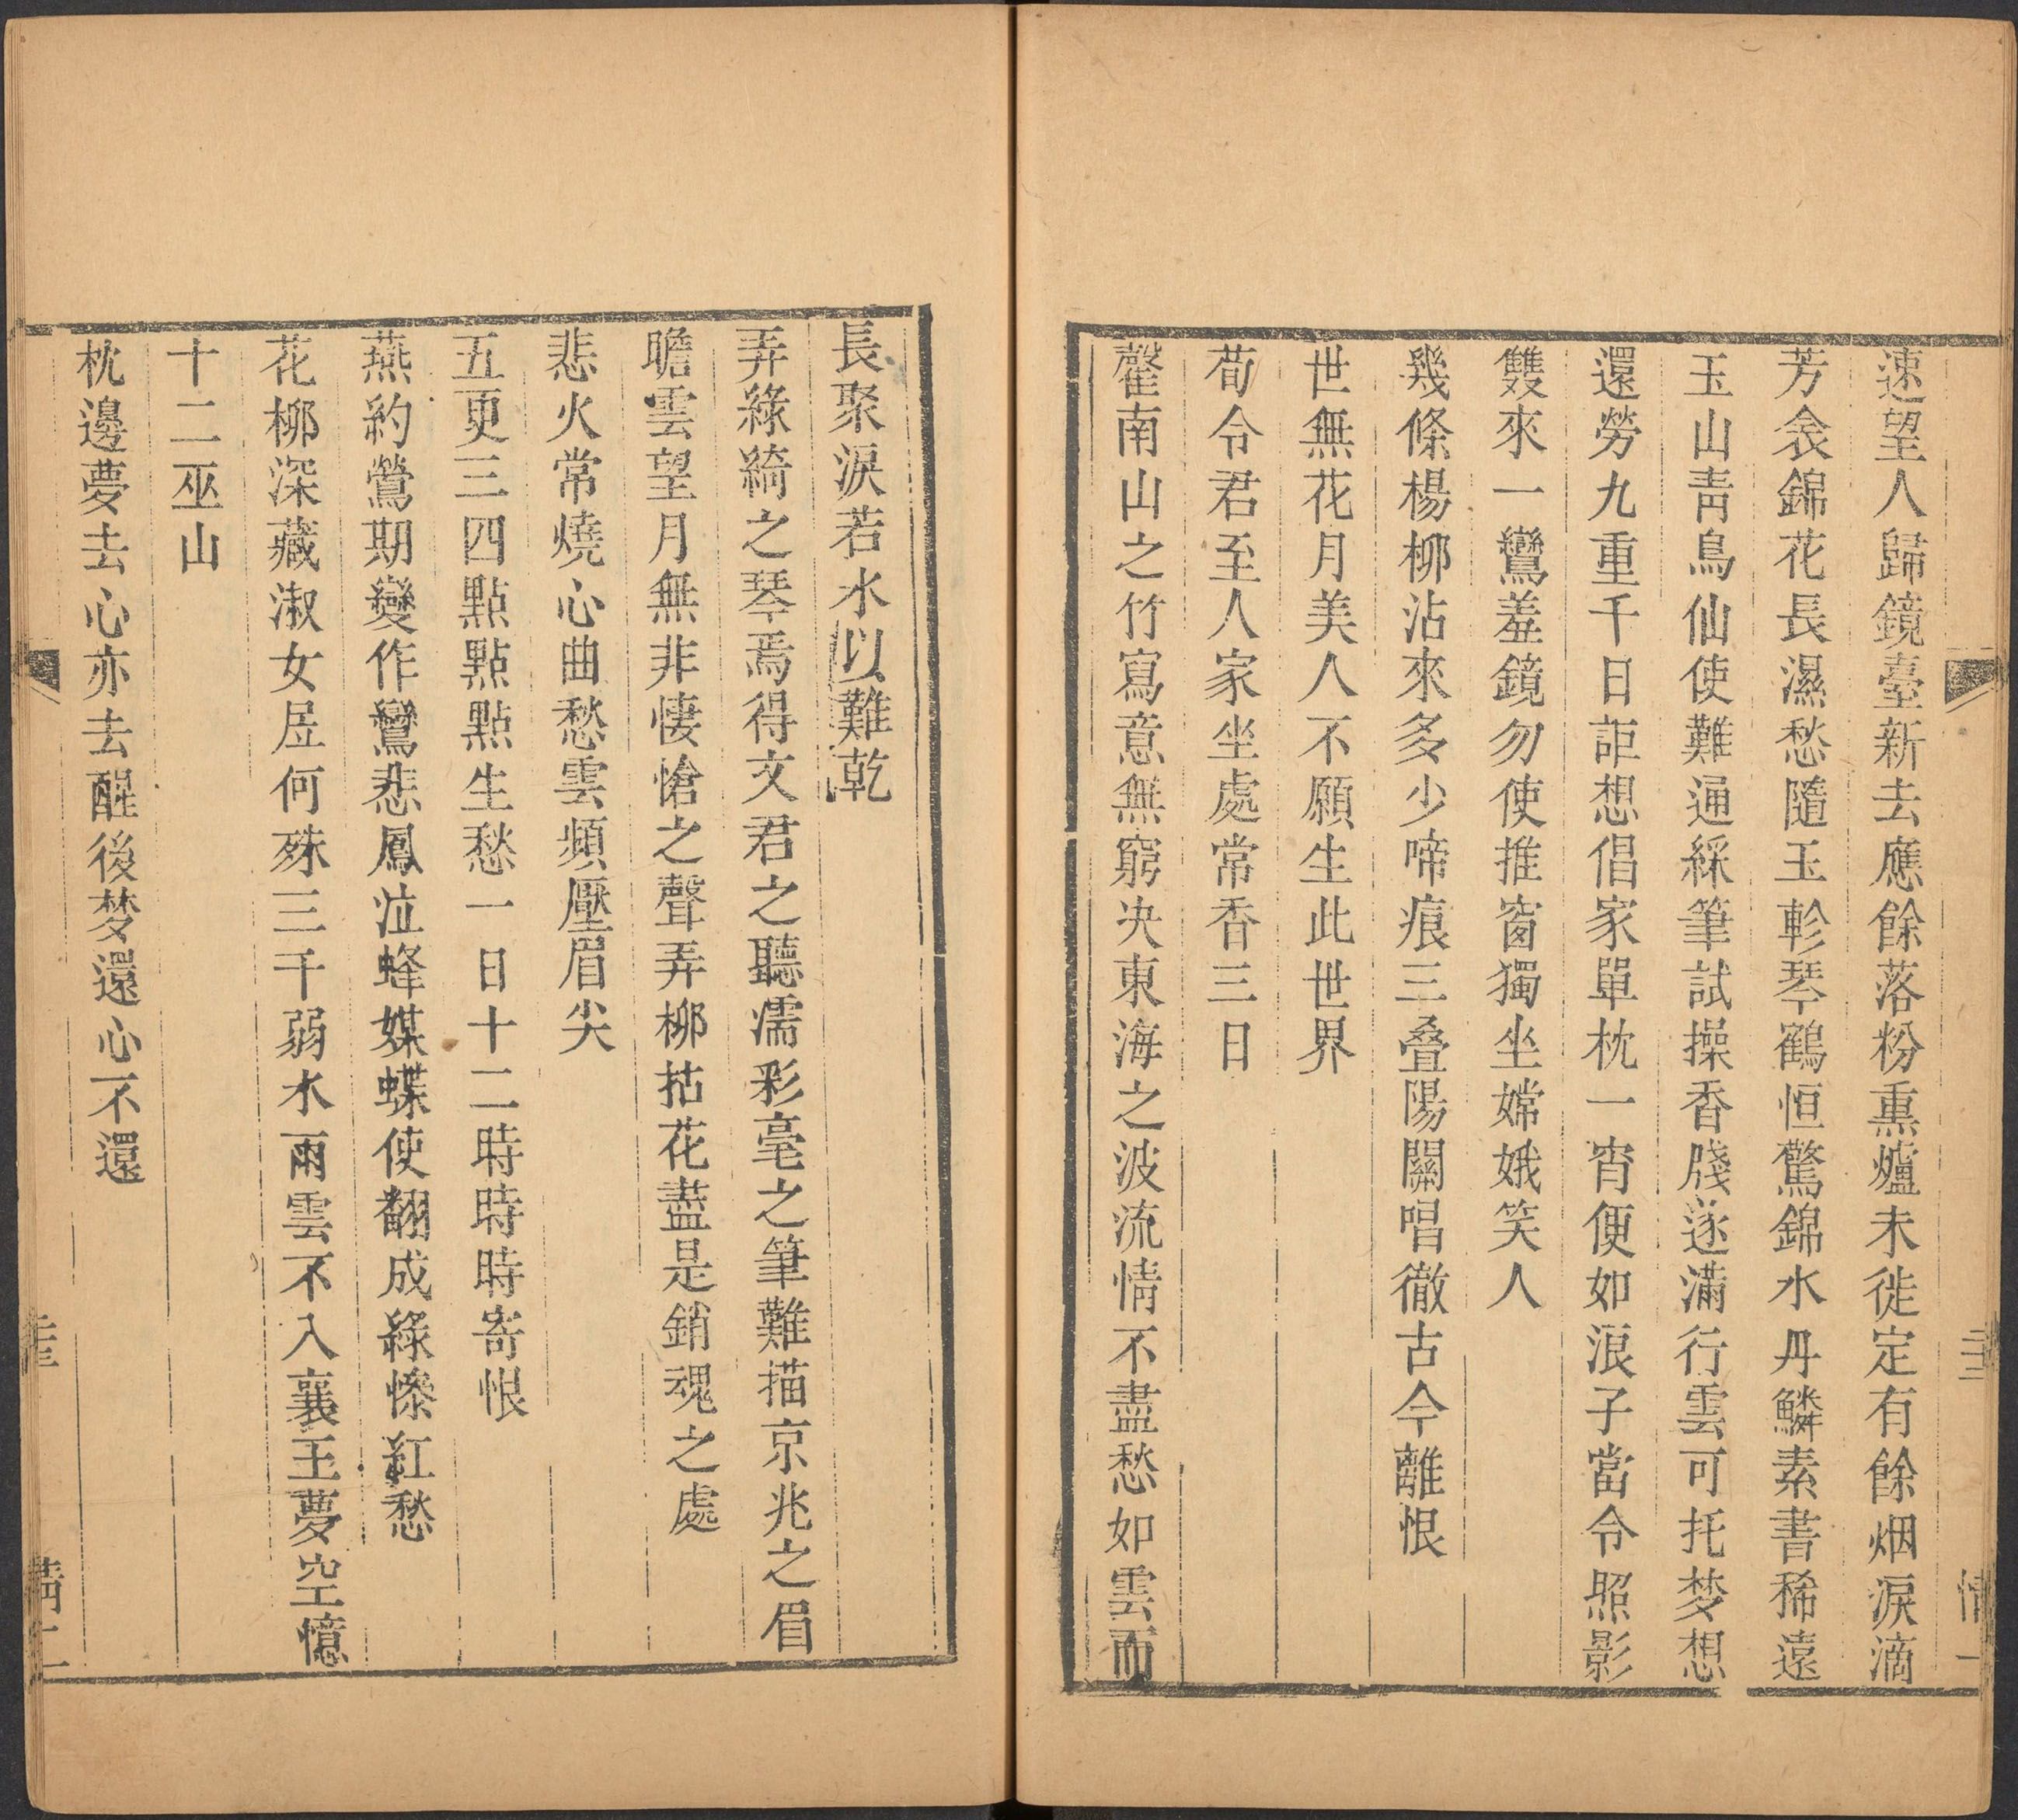 速望人歸鏡臺新去應餘落粉熏爐未徙定有餘烟淚滴
芳衾錦花長濕愁隨玉軫琴鶴恒驚錦水丹鱗素書稀遠
玉山靑鳥仙使難通綵筆試操香牋遂滿行雲可托梦想
還勞九重千日詎想倡家單枕一宵便如浪子當令照影
雙來一鸞羞鏡勿使推窗獨坐嫦娥笑人
幾條楊柳沾來多少啼痕三疊陽關唱徹古今離恨
世無花月美人不願生此世界
荀令君至人家坐處常香三日
罄南山之竹寫意無窮决東海之波流情不盡愁如雲而
長聚淚若水以難乾
弄綠綺之琴焉得文君之聽濡彩毫之筆難描京兆之眉
瞻雲望月無非悽愴之聲弄柳拈花盡是銷魂之處
悲火常燒心曲愁雲頻壓眉尖
五更三四點點點生愁一日十二時時時寄恨
燕約鶯期變作鸞悲鳳泣蜂媒蝶使翻成綠慘紅愁
花柳深藏淑女居何殊三千弱水雨雲不入襄王夢空憶
十二巫山
枕邊夢去心亦去醒後梦還心不還